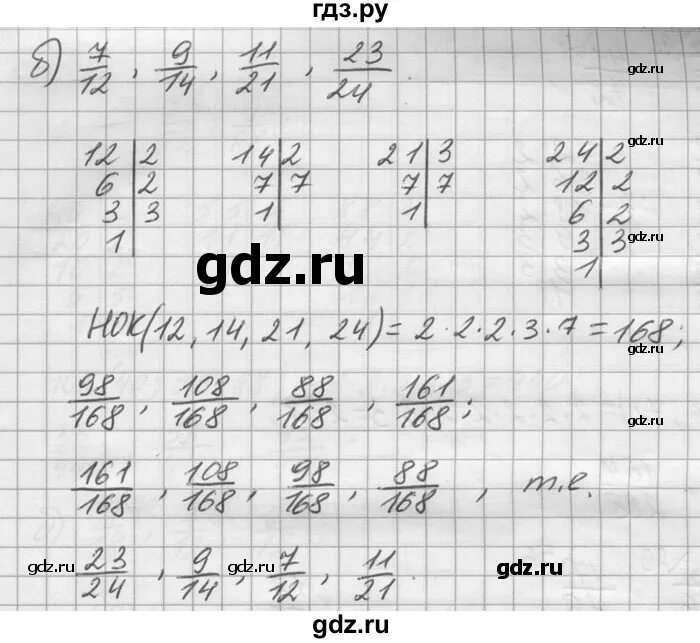 гдз.ру
б) 7/12, 9/14, 11/21, 23/24.
gdz.ru
gdz.ru
12|2 14|2 21|3 24|2
6|2 7|7 7|7 12|2
3|3 1| 1| 6|2
1| 3|3
1|
gdz.ru
НОК(12, 14, 21, 24) = 2·2·2·3·7 = 168;
gdz.ru
98/168, 108/168, 88/168, 161/168;
gdz.ru
161/168, 108/168, 98/168, 88/168, т.е.
gdz.ru
23/24, 9/14, 7/12, 11/21.
gdz.ru
gdz.ru
gdz.ru